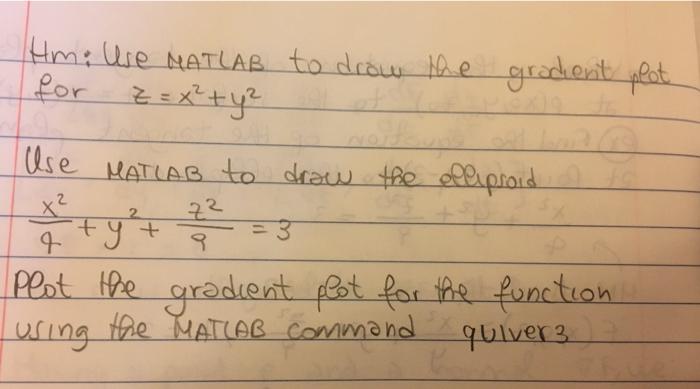 Hm: Use MATLAB to draw the gradient plot
for z = x² + y²
Use MATLAB to draw the ellipsoid
x²/4 + y² + z²/9 = 3
Plot the gradient plot for the function
using the MATLAB command quiver3